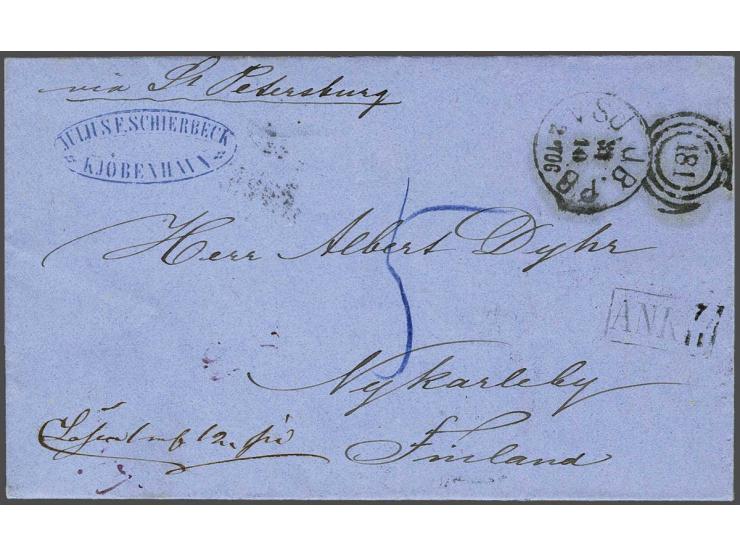 via St Petersburg
JULIUS F. SCHIERBECK
KJÖBENHAVN
JSJ. JB. P. B.
10
2 TOG
181
5
Herr Albert Dyhr
ANK
7
11
Nykarleby
Finland